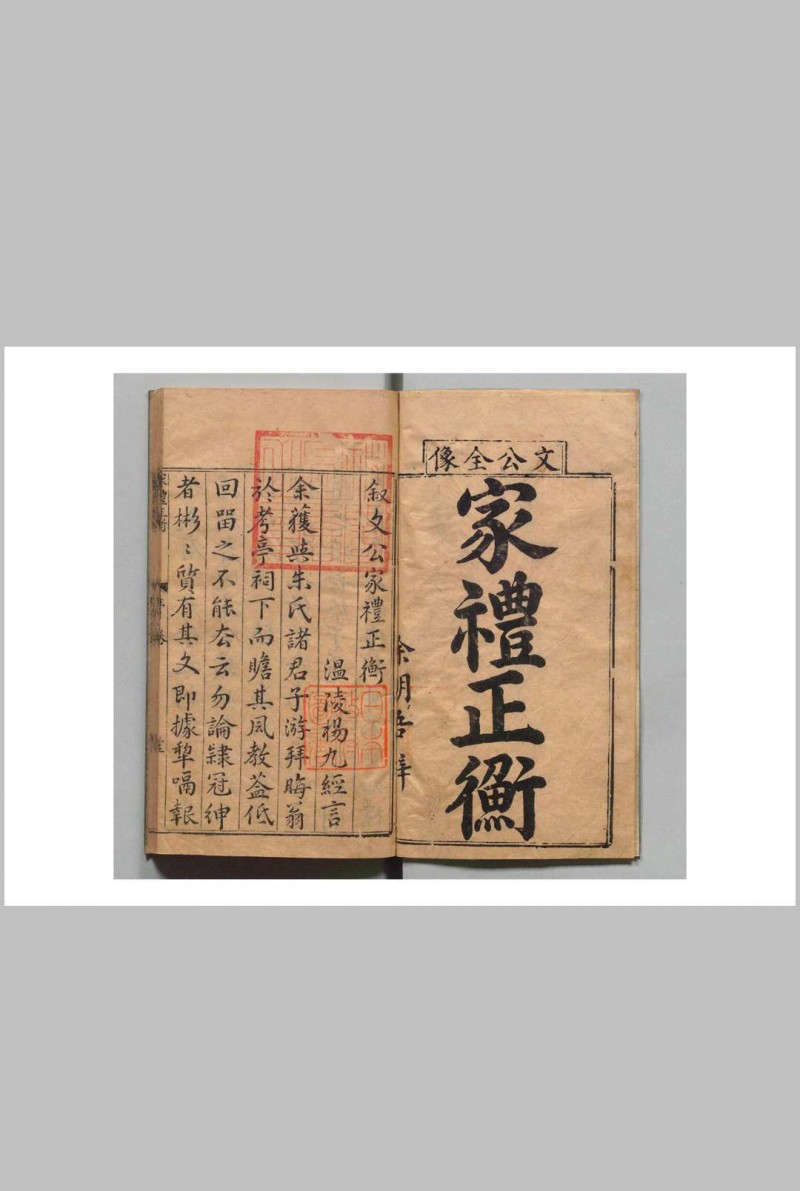 文公全像
家禮正衡
余明吾梓
叙文公家禮正衡
温陵楊九經言
余獲與朱氏諸君子游拜晦翁
於考亭祠下而瞻其風教葢低
回畱之不能厺云勿論隸冠紳
者彬〻質有其文即據犂嗝報